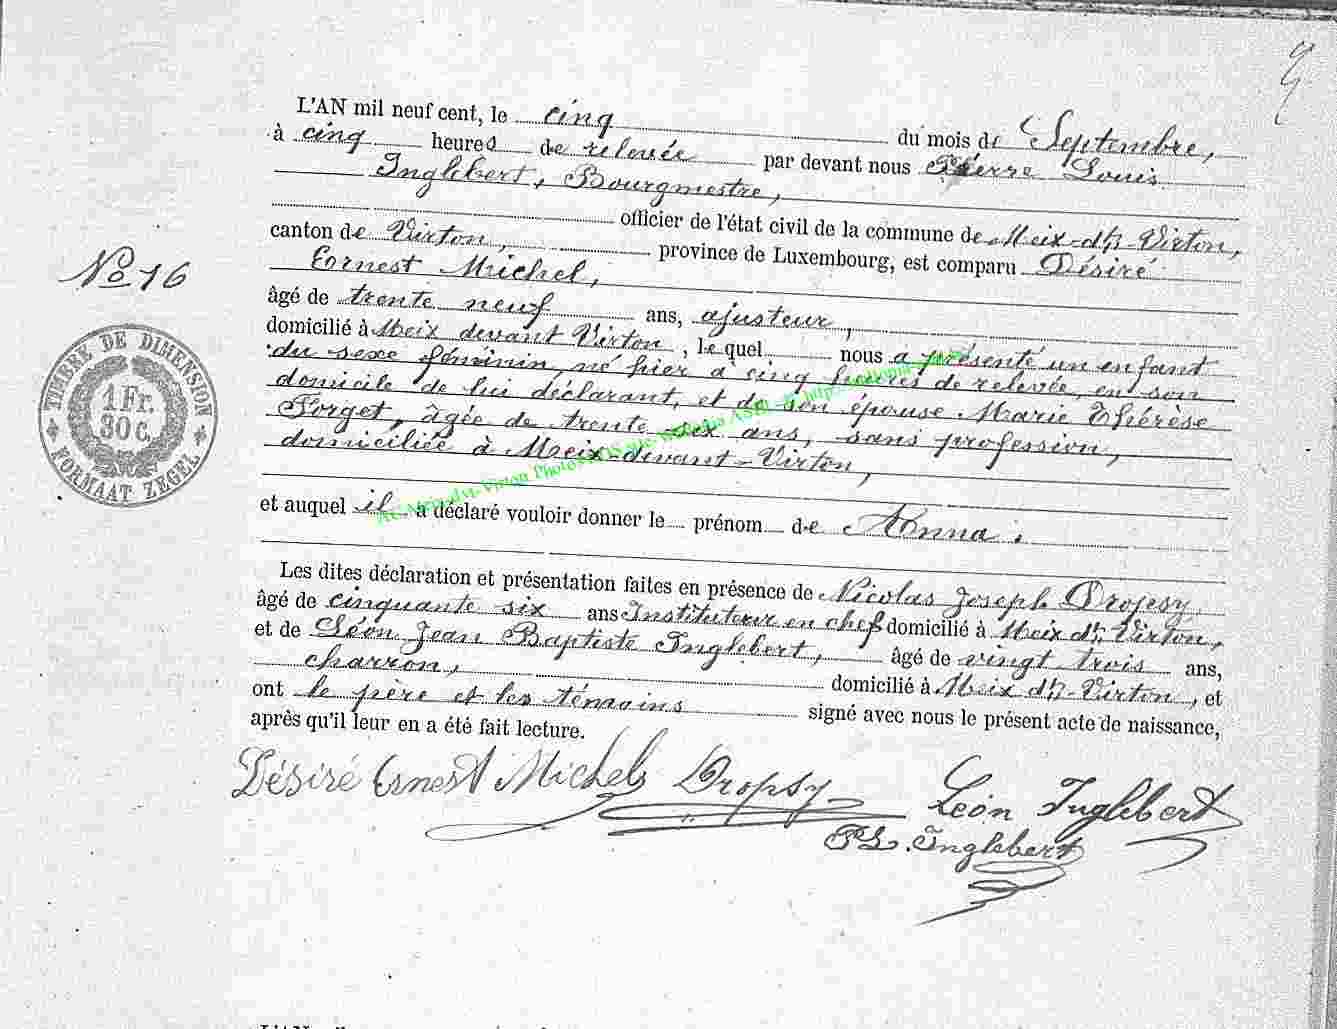 L'AN mil neuf cent, le cinq du mois de Septembre,
à cinq heures de relevée par devant nous Pierre Louis
Inglebert, Bourgmestre,
officier de l'état civil de la commune de Meix-dt-Virton,
canton de Virton, province de Luxembourg, est comparu Désiré
Ernest Michel,
âgé de trente neuf ans, ajusteur,
domicilié à Meix devant Virton, lequel nous a présenté un enfant
du sexe féminin, né hier à cinq heures de relevée, en son
domicile de lui déclarant, et de son épouse Marie Thérèse
Forget, âgée de trente six ans, sans profession,
domiciliée à Meix-devant-Virton,
et auquel il a déclaré vouloir donner le prénom de Anna.
Les dites déclaration et présentation faites en présence de Nicolas Joseph Dropsy,
âgé de cinquante six ans Instituteur en chef domicilié à Meix dt Virton,
et de Léon Jean Baptiste Inglebert, âgé de vingt trois ans,
charron, domicilié à Meix dt-Virton, et
ont le père et les témoins signé avec nous le présent acte de naissance,
après qu'il leur en a été fait lecture.
Désiré Ernest Michel Dropsy Léon Inglebert
PL. Inglebert
No 16
TIMBRE DE DIMENSION
1 Fr.
80 C.
FORMAAT ZEGEL